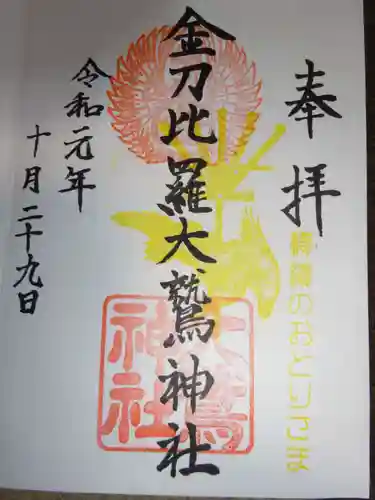 奉拝
横濱のおとりさま
金刀比羅大鷲神社
大鷲神社
令和元年
十月二十九日